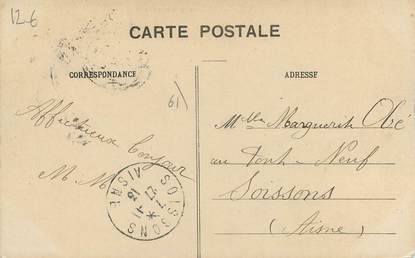 12-6
CARTE POSTALE
CORRESPONDANCE
ADRESSE
61
Affectueux bonjour
M. M.
Mlle Marguerite
au Pont-Neuf
Soissons
(Aisne)
SOISSONS
AISNE